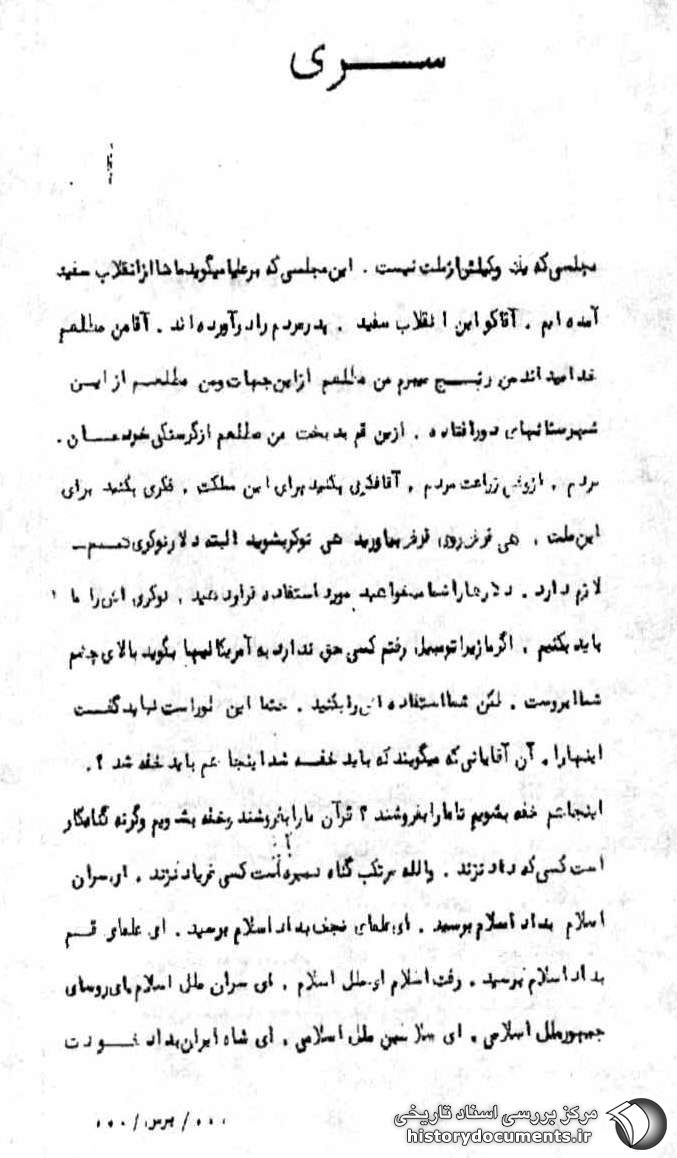 سری
مجلسی که یک وکیلش از ملت نیست . این مجلسی که برعلیا میگوید ماشا از انقلاب سفید
آمده ایم . آقا کو این انقلاب سفید . پدر مردم را درآورده اند . آقا من مطلعم
خدا میداند من رنج میبرم من مطلعم از این جهات ومن مطلعم از این
شهرستانهای دورافتاده . ازین قم بدبخت من مطلعم از گرسنگی خوردن
مردم . ازوضع زراعت مردم . آقا فکری بکنید برای این مملکت . فکری بکنید برای
این ملت . هی قرض روی قرض بیاورید هی نوکر بشوید البته دلار نوکری هم
لازم دارد . دلارها را شما میخواهید مورد استفاده قرار دهید . نوکری اش را ما
باید بکنیم . اگر ما زیر اتومبیل رفتم کسی حق ندارد به آمریکائیها بگوید بالای چشم
شما ابروست . لکن شما استفاده اش را بکنید . حتما این طور است نباید گفت
اینها را . آن آقایانی که میگویند که باید خفه شد اینجا هم باید خفه شد ؟ .
اینجا هم خفه بشویم تا ما را بفروشند ؟ قرآن ما را بفروشند وخفه بشویم وگرنه گناهکار
است کسی که داد نزند . والله مرتکب گناه کبیره است کسی فریاد نزند . ای سران
اسلام بداد اسلام برسید . ای علمای نجف بداد اسلام برسید . ای علمای قم
بداد اسلام برسید . رفت اسلام ای ملل اسلام . ای سران ملل اسلام ای روسای
جمهور ملل اسلامی . ای سلاطین ملل اسلامی . ای شاه ایران بداد خودت
۰۰۰/ برس /۰۰۰
مرکز بررسی اسناد تاریخی
historydocuments.ir